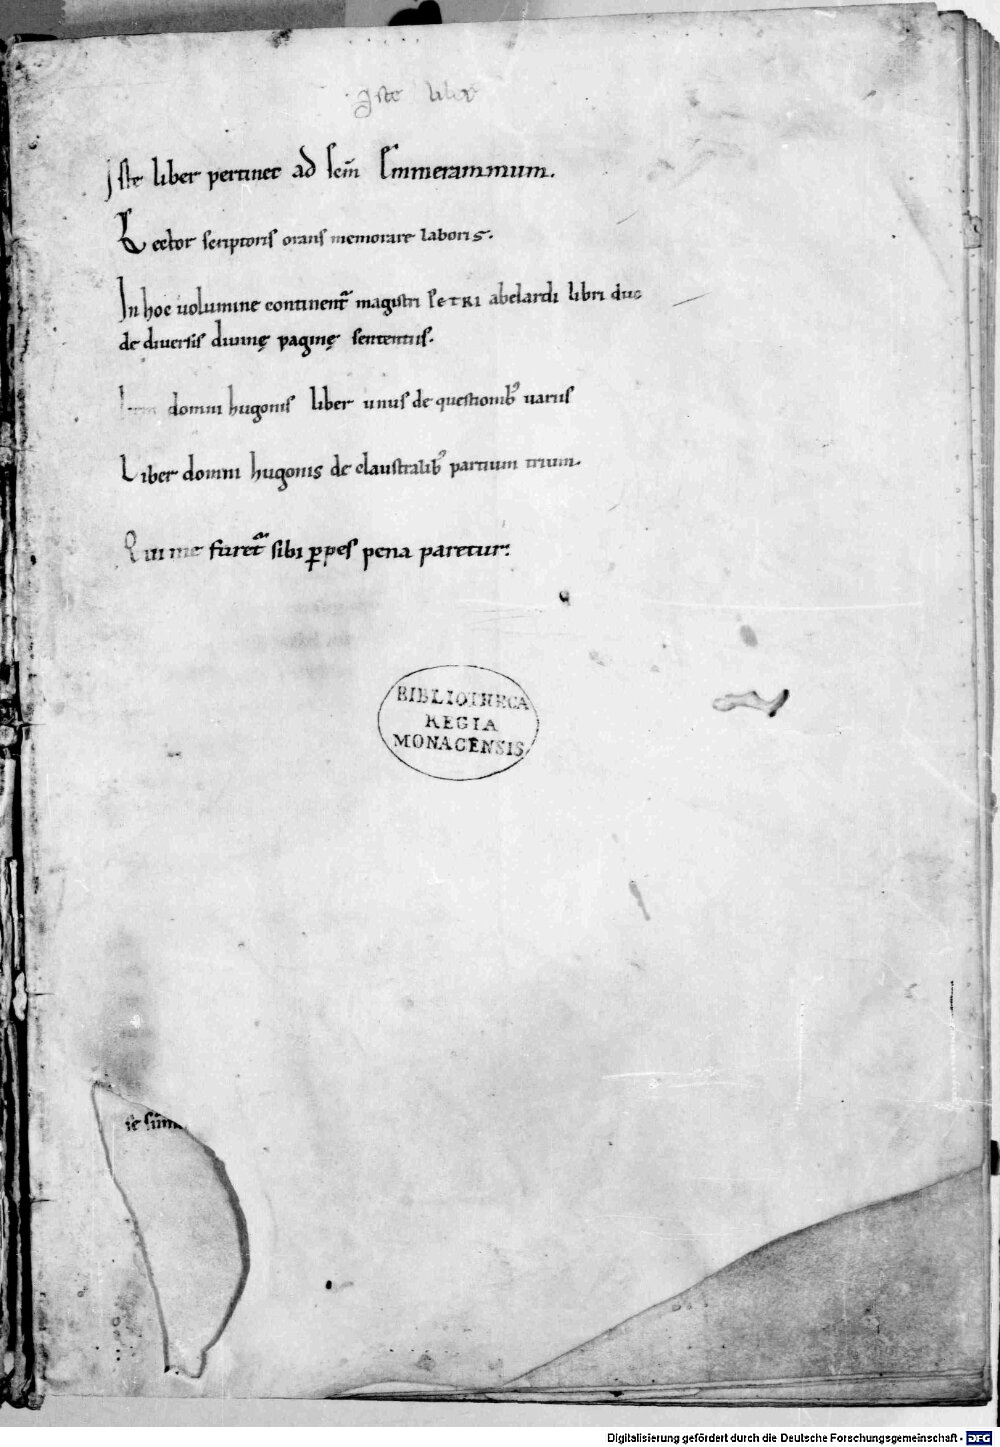 Iste liber
Iste liber pertinet ad scm̄ Emmerammum.
Lector scriptoris orans memorare laboris.
In hoc uolumine continent᷑ magistri PETRI abelardi libri duo
de diuersis diuinę paginę sententiis.
Item domni hugonis liber unus de questionibꝰ uariis
Liber domni hugonis de claustralibꝰ partium trium.
Qui me furet᷑ sibi ꝑpes pena paretur:
BIBLIOTHECA
REGIA
MONACENSIS
se sūm
Digitalisierung gefördert durch die Deutsche Forschungsgemeinschaft - DFG